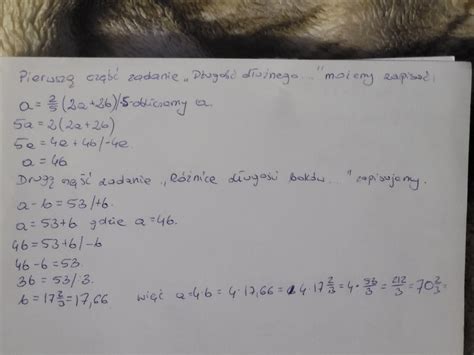 Pierwszą część zadanie „Długość dłuższego..." możemy zapisać:
a = 2/5 (2a+2b) /·5 obliczamy a.
5a = 2(2a+2b)
5a = 4a+4b /-4a
a = 4b
Drugą część zadanie „Różnica długości boków..." zapisujemy.
a - b = 53 /+b
a = 53+b gdzie a=4b
4b = 53+b /-b
4b-b = 53
3b = 53 /:3
b = 17 2/3 = 17,66 więc a=4·b = 4·17,66 = 4·17 2/3 = 4· 53/3 = 212/3 = 70 2/3 =